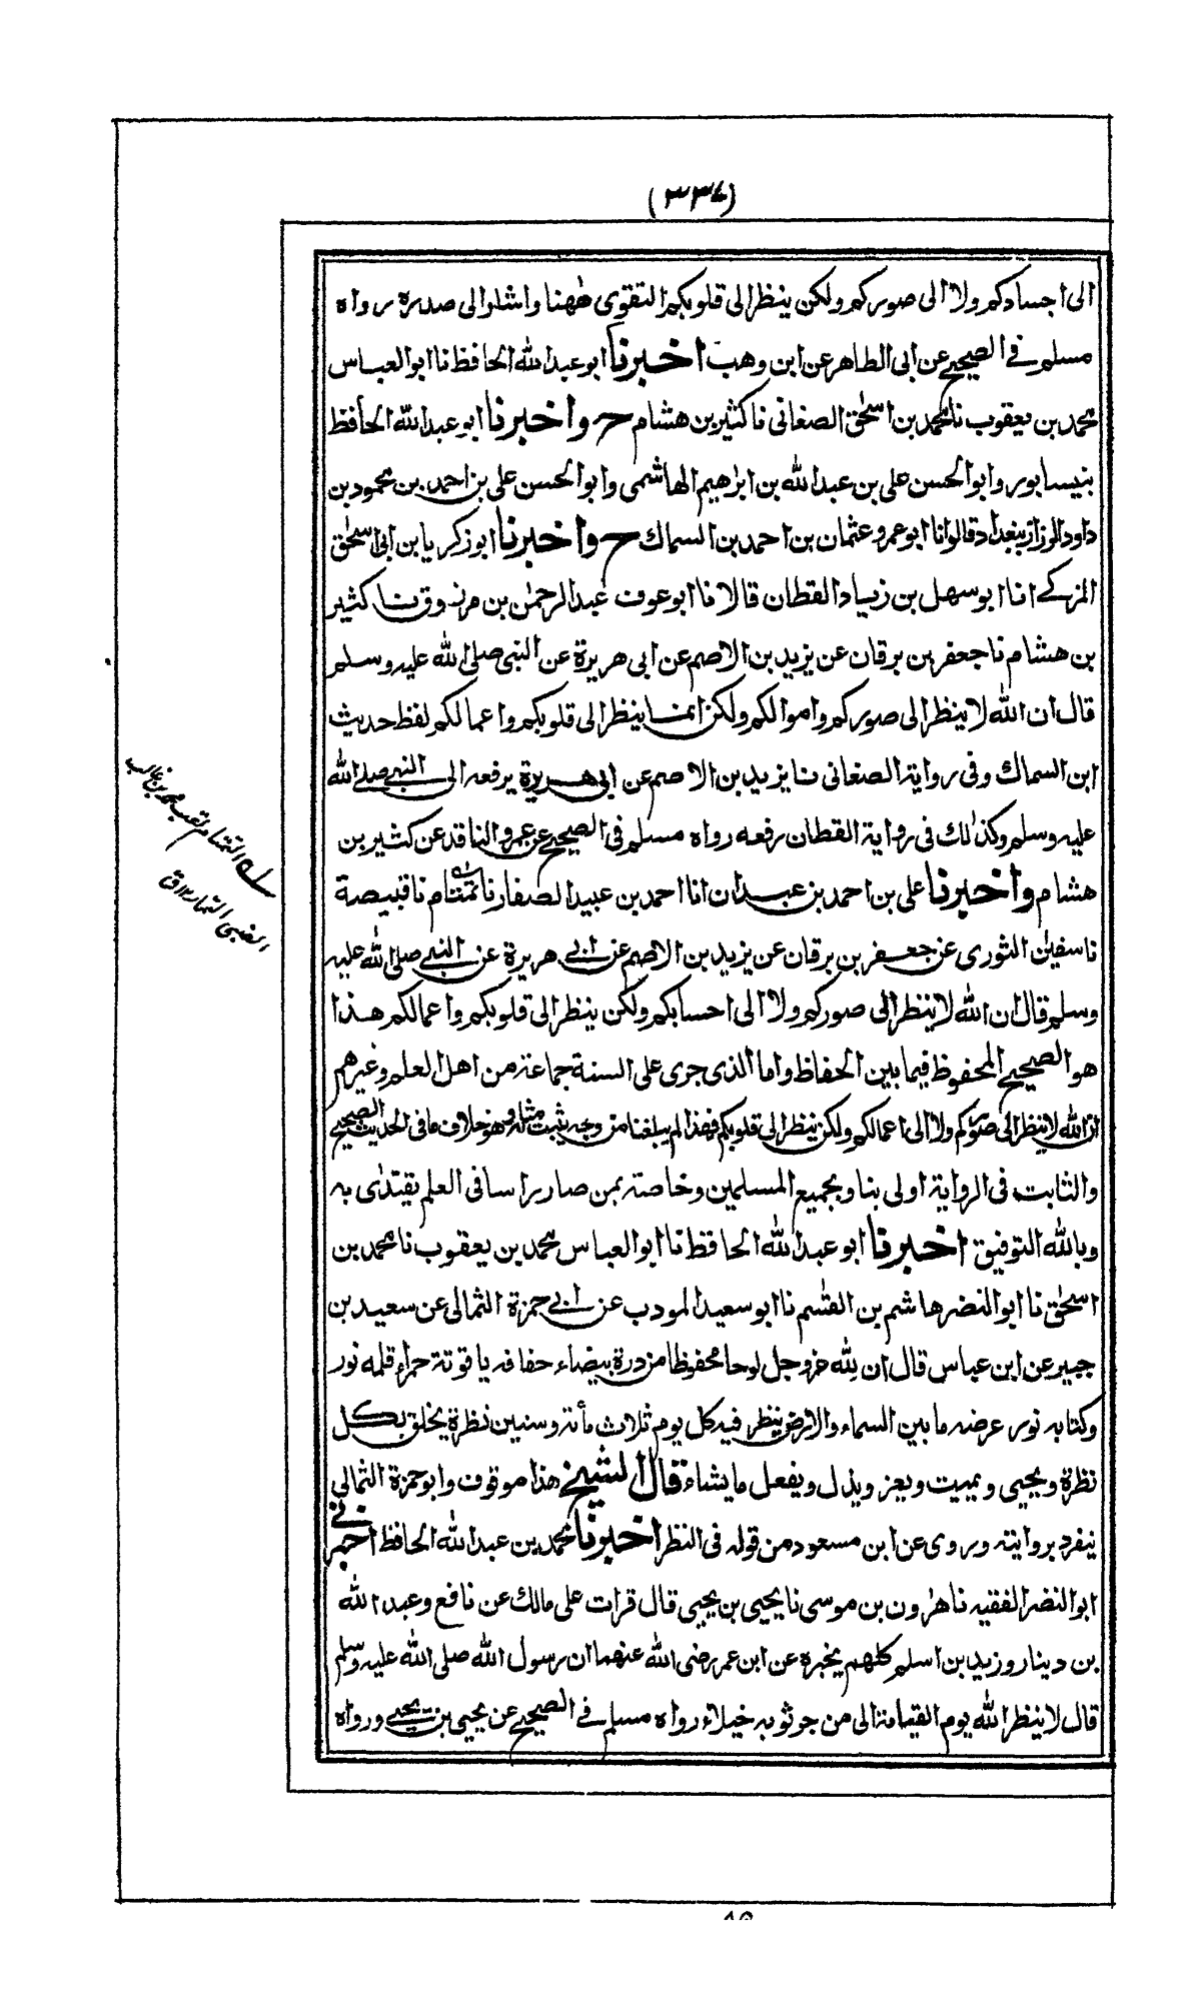 (٣٣٧)
الى اجسادكم ولا الى صوركم ولكن ينظر الى قلوبكم التقوى ههنا واشار الى صدره رواه
مسلم في الصحيح عن ابى الطاهر عن ابن وهب اخبرنا ابو عبد الله الحافظ نا ابو العباس
محمد بن يعقوب نا محمد بن اسحٰق الصغانى نا كثير بن هشام ح واخبرنا ابو عبد الله الحافظ
بنيسابور وابو الحسن على بن عبد الله بن ابرٰهيم الهاشمى وابو الحسن على بن احمد بن محمود بن
داود الرزاز ببغداد قالوا انا ابو عمرو عثمان بن احمد بن السماك ح واخبرنا ابو زكريا بن ابى اسحٰق
المزكے انا ابو سهل بن زياد القطان قالا نا ابو عوف عبد الرحمٰن بن مرزوق نا كثير
بن هشام نا جعفر بن برقان عن يزيد بن الاصم عن ابى هريرة عن النبى صلى الله عليه وسلم
قال ان الله لا ينظر الى صوركم واموالكم ولكن انما ينظر الى قلوبكم واعمالكم لفظ حديث
ابن السماك وفى رواية الصغانى نا يزيد بن الاصم عن ابى هريرة يرفعه الى النبے صلے الله
عليه وسلم وكذٰلك فى رواية القطان رفعه رواه مسلم فى الصحيح عن عمرو الناقد عن كثير بن
هشام واخبرنا على بن احمد بن عبدان انا احمد بن عبيد الصفار نا تمتام نا قبيصة
نا سفيٰن الثورى عن جعفر بن برقان عن يزيد بن الاصم عن ابے هريرة عن النبے صلى الله عليه
وسلم قال ان الله لا ينظر الى صوركم ولا الى احسابكم ولكن ينظر الى قلوبكم واعمالكم هذا
هو الصحيح المحفوظ فيما بين الحفاظ واما الذى جرى على السنة جماعة من اهل العلم وغيرهم
ان الله لا ينظر الى صوركم ولا الى اعمالكم ولكن ينظر الى قلوبكم فهذا لم يبلغنا من وجه يثبت مثله وهو خلاف ما فى الحديث الصحيح
والثابت فى الرواية اولى بنا وبجميع المسلمين وخاصة بمن صار راسا فى العلم يقتدٰى به
وبالله التوفيق اخبرنا ابو عبد الله الحافظ نا ابو العباس محمد بن يعقوب نا محمد بن
اسحٰق نا ابو النضر هاشم بن القٰسم نا ابو سعيد المودب عن ابے حمزة الثمالى عن سعيد بن
جبير عن ابن عباس قال ان لله عز وجل لوحا محفوظا من درة بيضاء حفافه ياقوتة حمراء قلمه نور
وكتابه نور عرضه ما بين السماء والارض ينظر فيه كل يوم ثلاث مأته وستين نظرة يخلق بكل
نظرة ويحيى ويميت ويعز ويذل ويفعل ما يشاء قال الشيخ هذا موقوف وابو حمزة الثمالى
ينفرد بروايته وروى عن ابن مسعود من قوله فى النظر اخبرنا محمد بن عبد الله الحافظ اخبرنے
ابو النضر الفقيه نا هٰرون بن موسى نا يحيى بن يحيى قال قرات على مالك عن نافع وعبد الله
بن دينار وزيد بن اسلم كلهم يخبره عن ابن عمر رضى الله عنهما ان رسول الله صلى الله عليه وسلم
قال لا ينظر الله يوم القيامة الى من جر ثوبه خيلاء رواه مسلم في الصحيح عن يحيى بن يحيے ورواه
له التمتام لقب محمد بن غالب
الضبى التمار